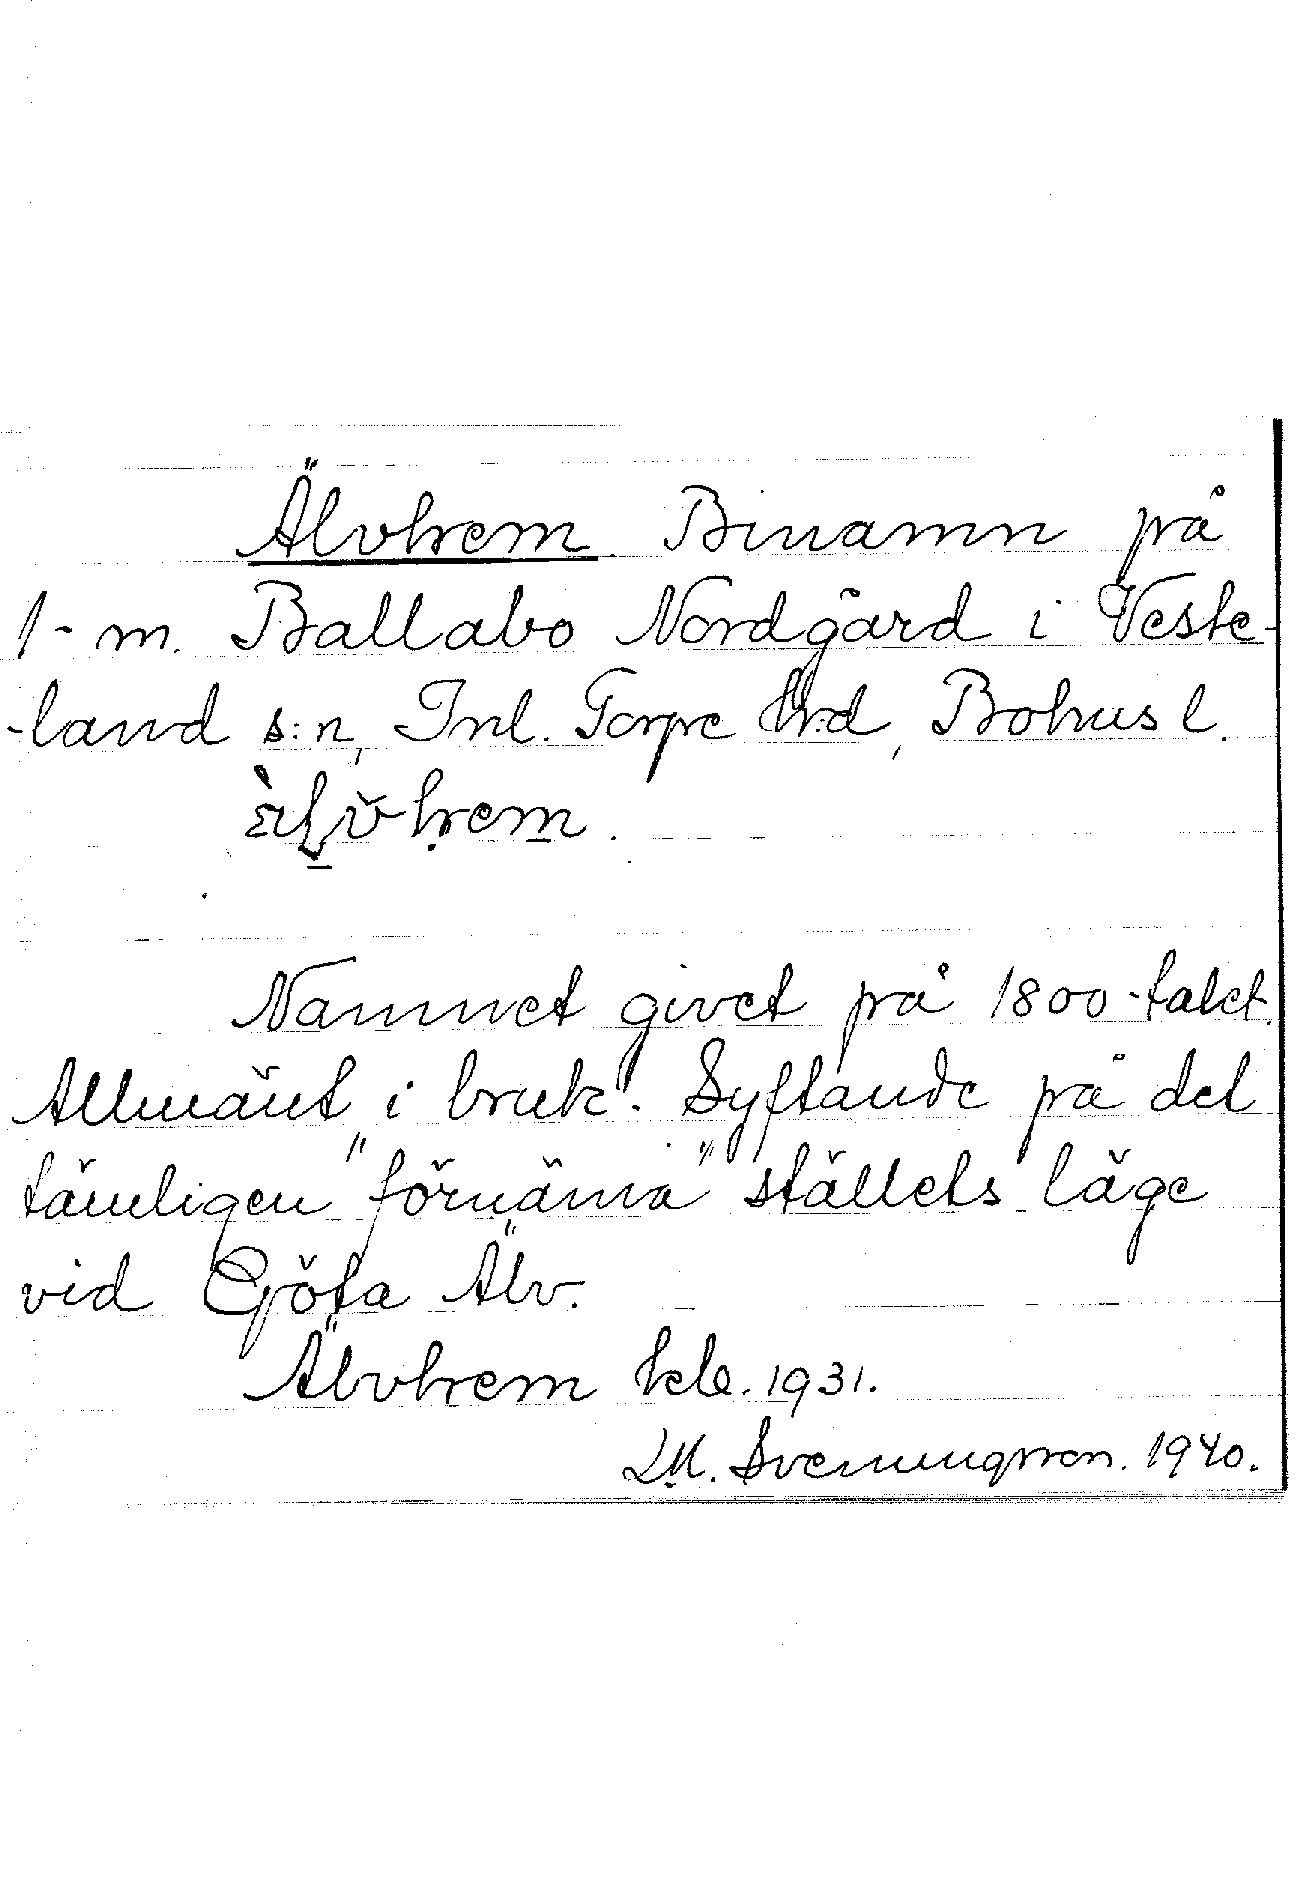 Älvhem. Binamn på
1-m. Ballabo Nordgård i Veste-
-land s:n, Inl. Torpe Hrd, Bohus l.
Namnet givet på 1800-talet.
Allmänt i bruk. Syftande på det
tämligen "förnäma" ställets läge
vid Göta Älv.
Älvhem kelb. 1931.
Svenungsson. 1940.